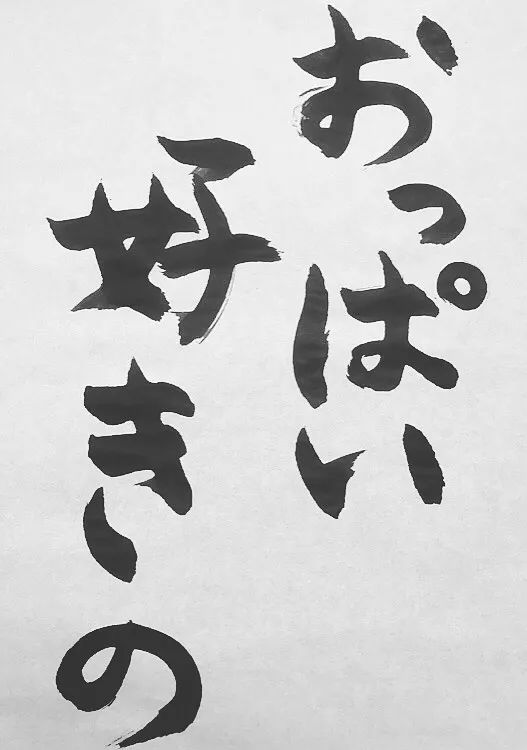 おっぱい
好きの